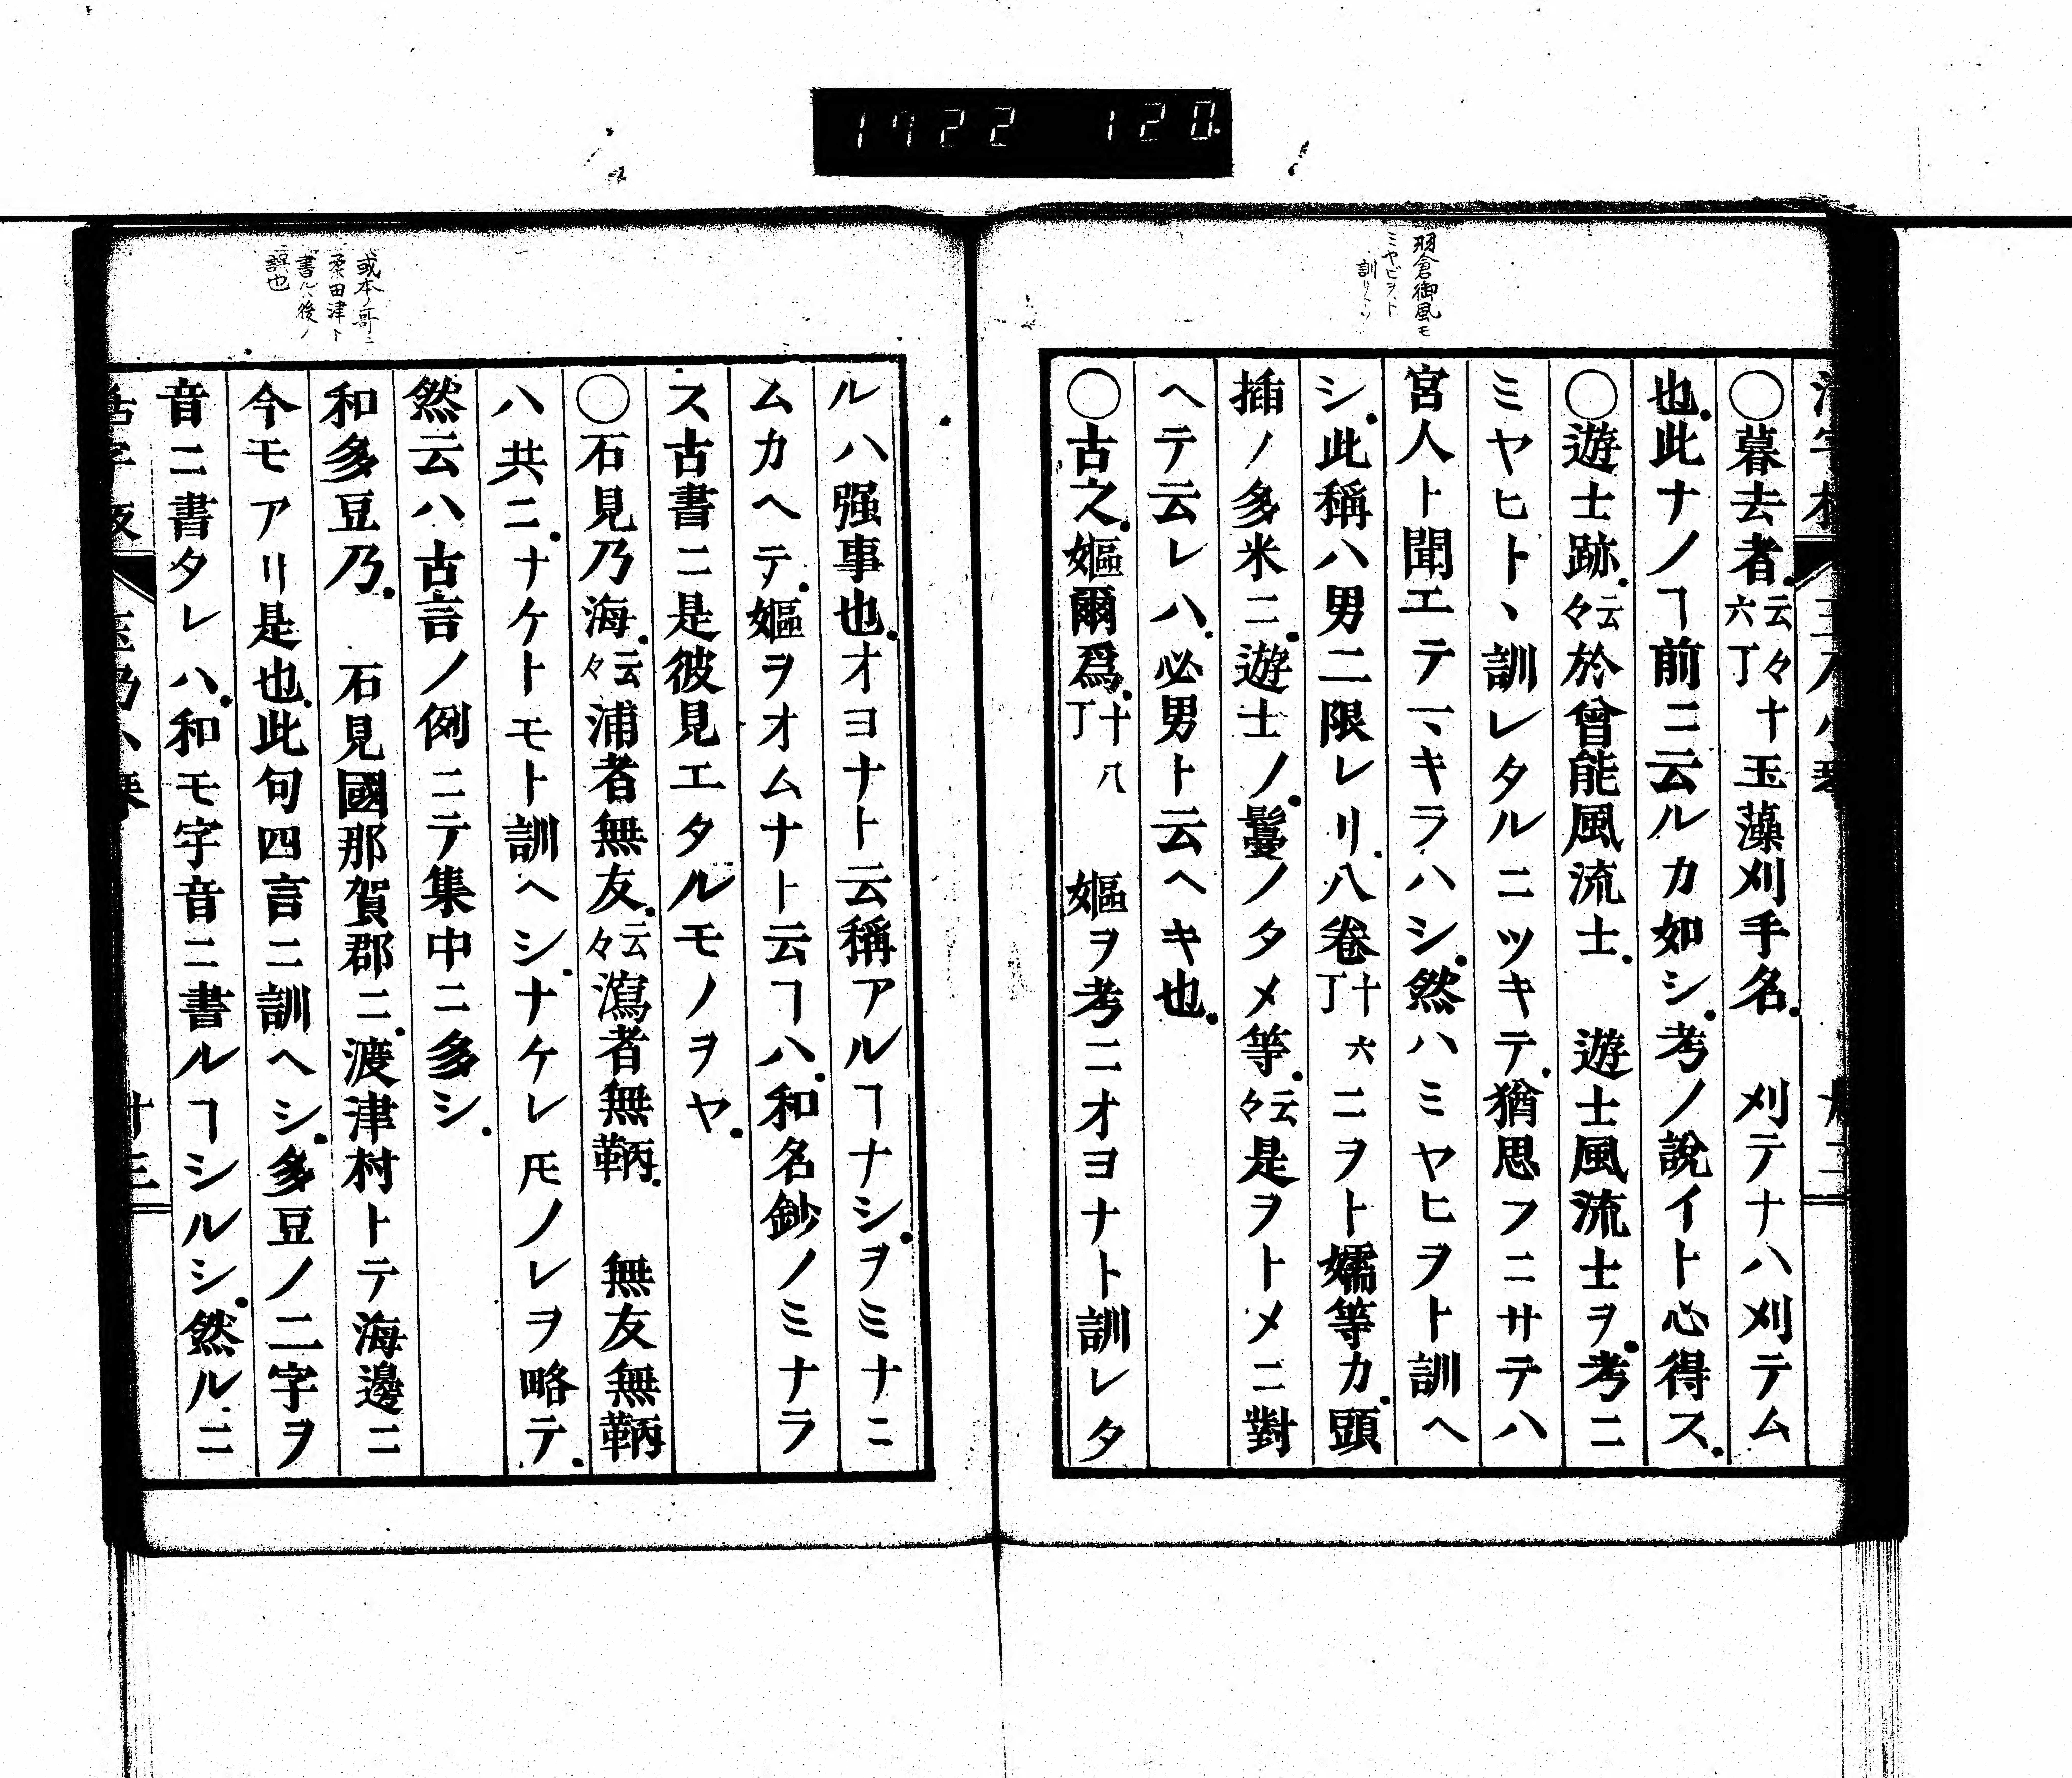 1722 120
羽倉御風モ
ミヤビヲト
訓リトソ
○暮去者。云々十六丁玉藻刈手名。 刈テナハ刈テム
也。此ナノヿ前ニ云ルカ如シ。考ノ說イト心得ス。
○遊士跡。云々於曾能風流士。 遊士風流士ヲ。考ニ
ミヤヒトヽ訓レタルニツキテ。猶思フニサテハ
宮人ト聞エテマキラハシ。然ハミヤヒヲト訓ヘ
シ。此稱ハ男ニ限レリ。八卷十六丁ニヲト嬬等カ。頭
插ノ多米ニ。遊士ノ。鬘ノタメ等。云々是ヲトメニ對
ヘテ云レハ。必男ト云ヘキ也。
○古之。嫗爾爲。十八丁 嫗ヲ考ニオヨナト訓レタ
ルハ强事也。オヨナト云稱アルヿナシ。ヲミナニ
ムカヘテ。嫗ヲオムナト云ヿハ。和名鈔ノミナラ
ス古書ニ是彼見エタルモノヲヤ。
○石見乃海。云々浦者無友。云々瀉者無鞆。 無友無鞆
ハ共ニ。ナケトモト訓ヘシ。ナケレ𪜈ノレヲ略テ。
然云ハ古言ノ例ニテ集中ニ多シ。
和多豆乃。 石見國那賀郡ニ。渡津村トテ海邊ニ
今モアリ是也。此句四言ニ訓ヘシ。多豆ノ二字ヲ
音ニ書タレハ。和モ字音ニ書ルヿシルシ。然ルニ
或本ノ哥ニ
柔田津ト
書ルハ後ノ
誤也